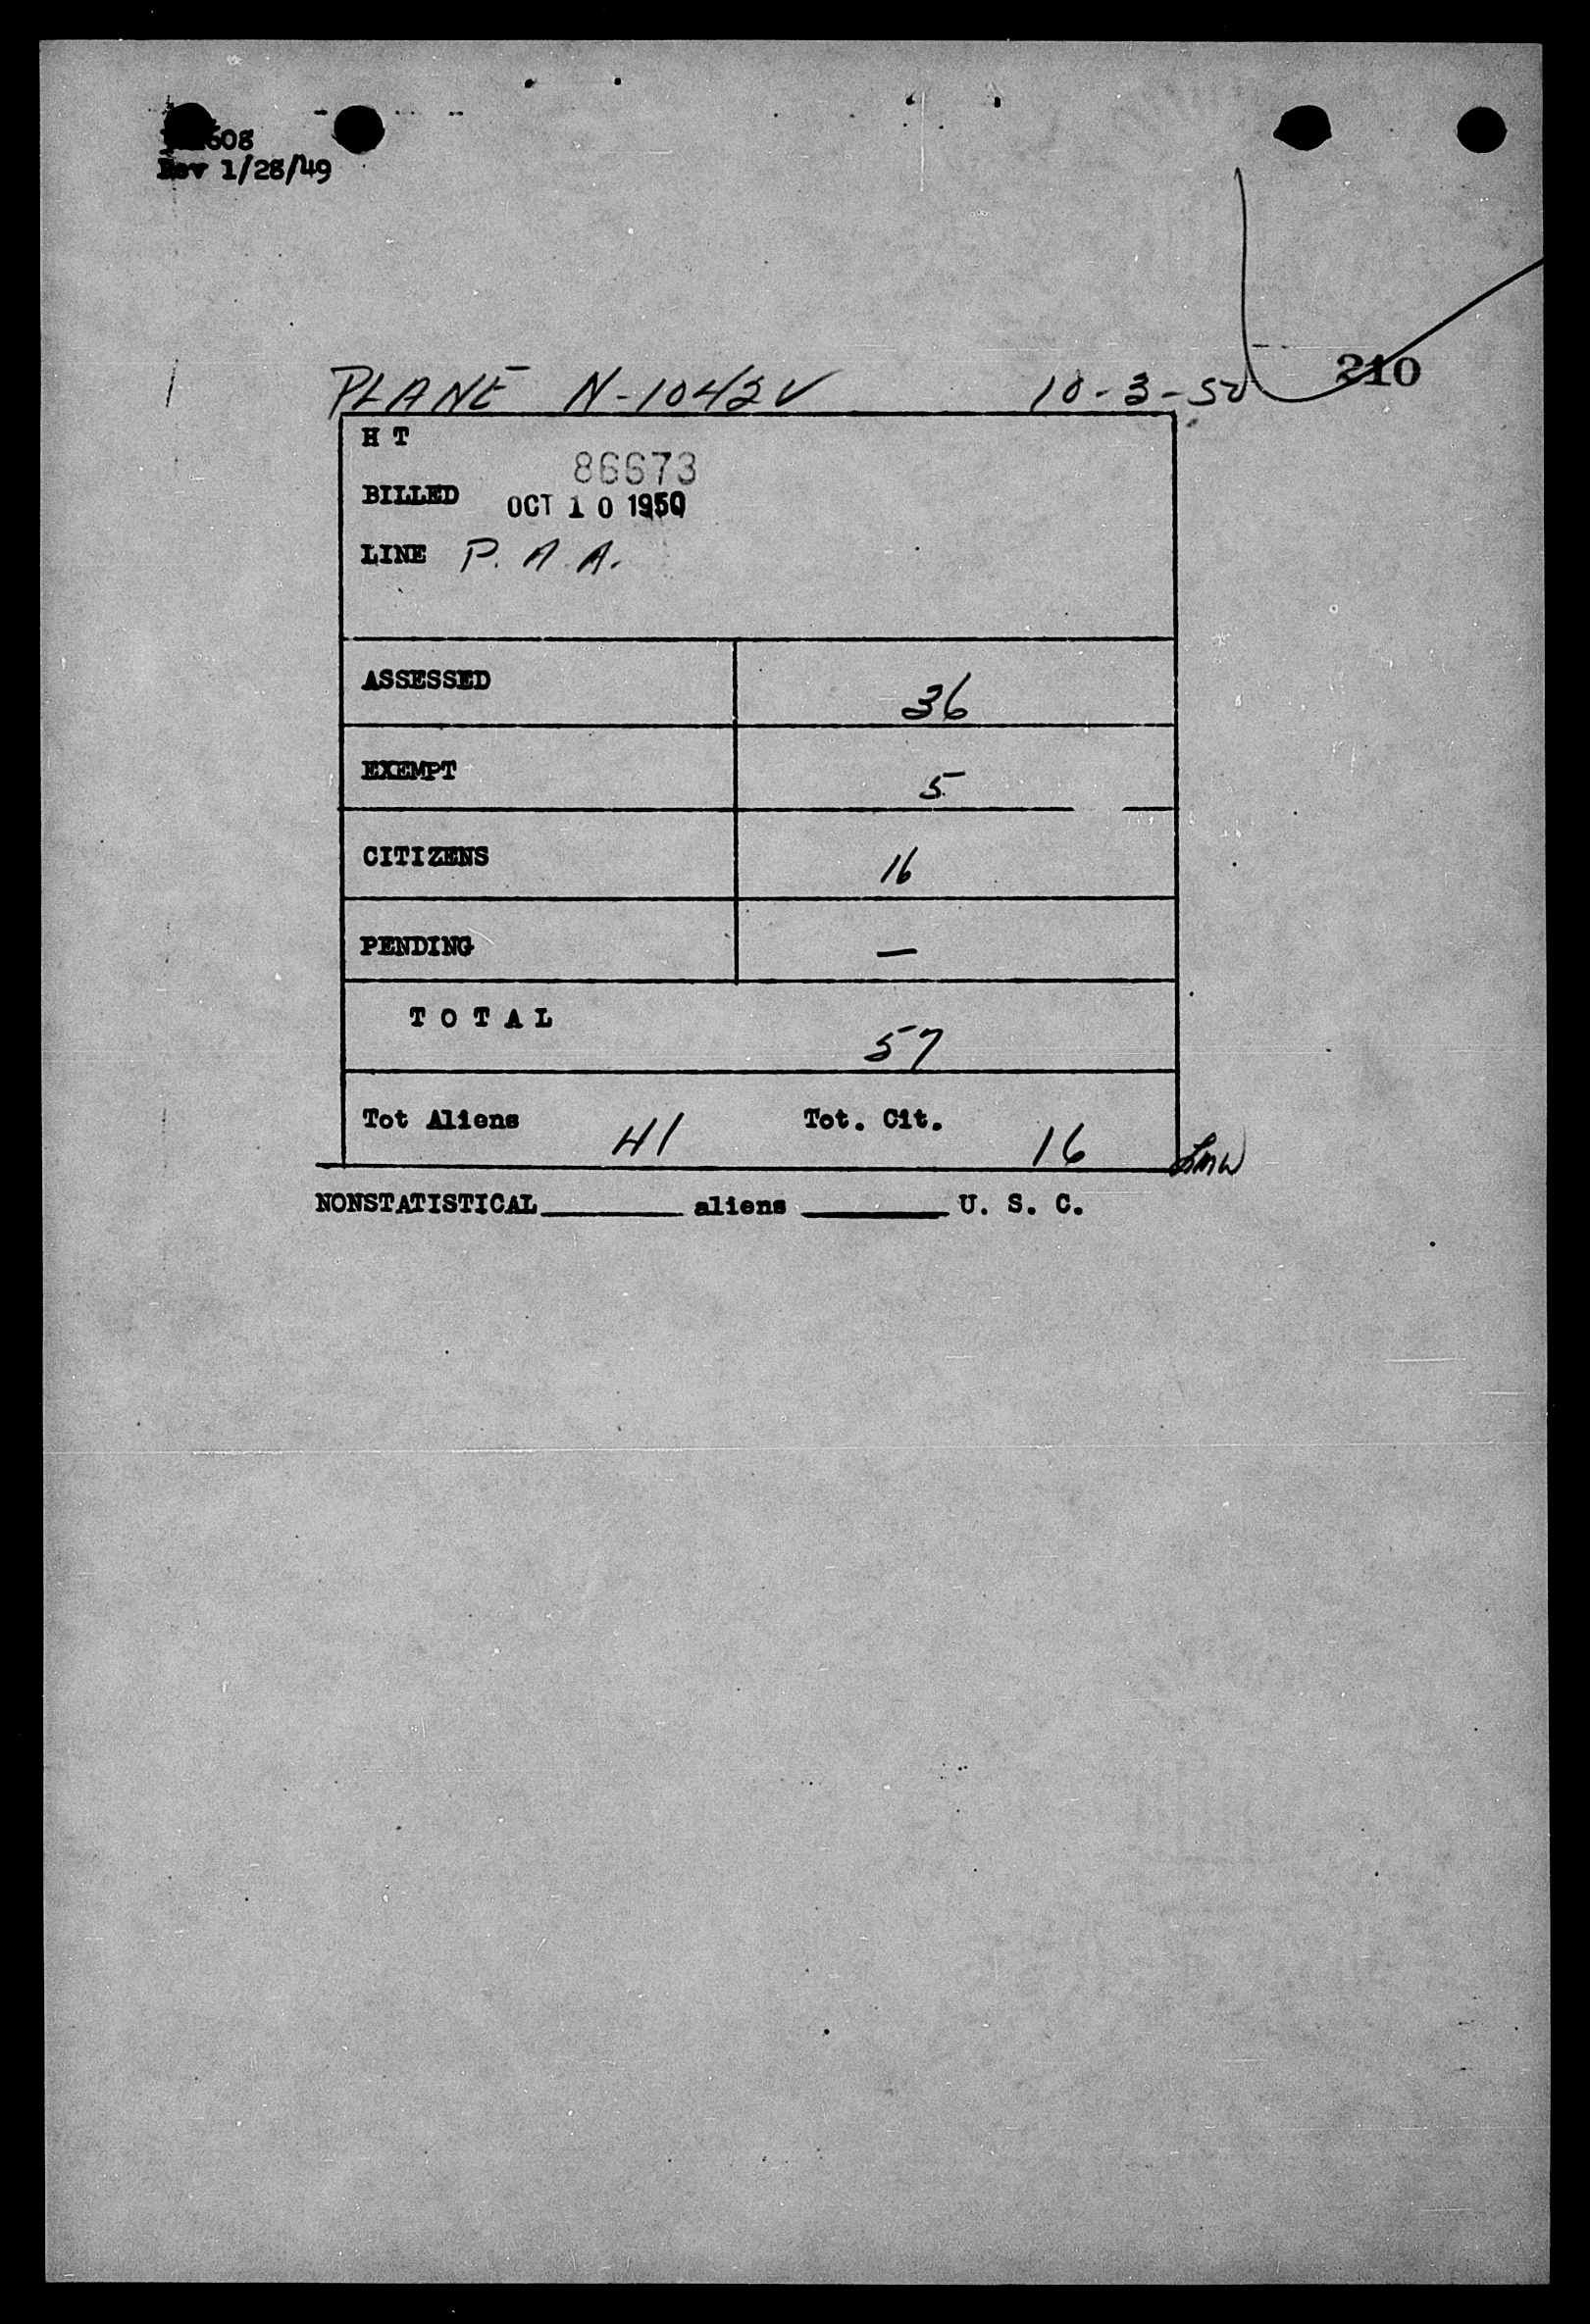 608
Rev 1/28/49
210
PLANE N-1042V 10-3-50
H T
86673
BILLED OCT 10 1950
LINE P. A. A.
ASSESSED 36
EXEMPT 5
CITIZENS 16
PENDING —
T O T A L 57
Tot Aliens 41 Tot. Cit. 16
NONSTATISTICAL______ aliens ______ U. S. C.